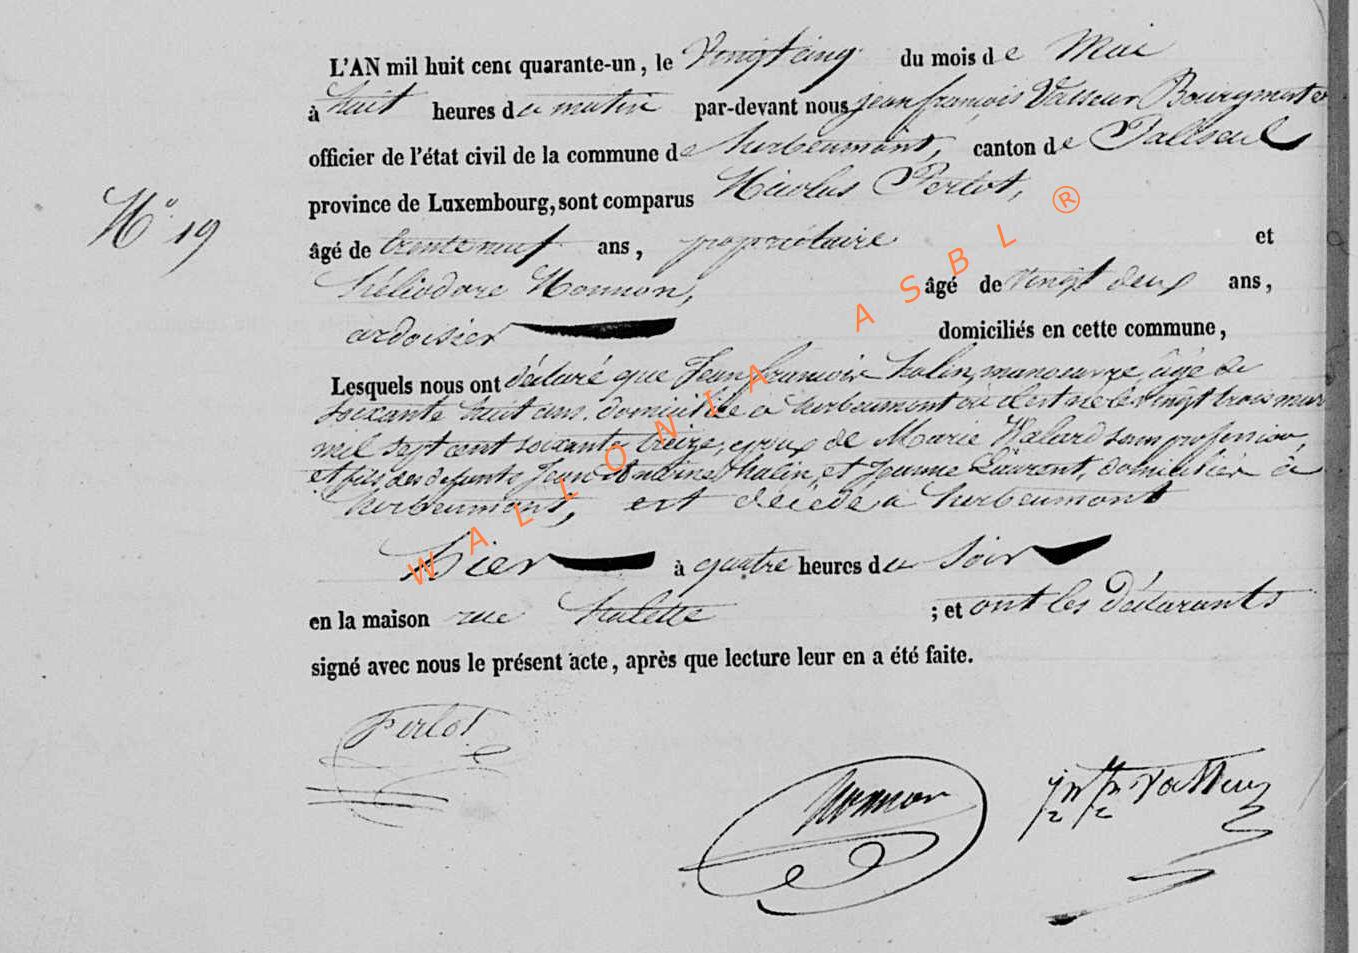 L'AN mil huit cent quarante-un, le Vingt cinq du mois de Mai
à huit heures du matin par-devant nous jean françois Vasseur Bourgmestre
officier de l'état civil de la commune de herbeumont, canton de Paliseul
province de Luxembourg, sont comparus Nicolas Perlot,
N° 19
âgé de trente neuf ans, propriétaire et
héliodore Monnon, âgé de vingt deux ans,
ardoisier domiciliés en cette commune,
Lesquels nous ont déclaré que Jean francois halin, manoeuvre, âgé de
soixante huit ans, domicilié à herbeumont où il est né le vingt trois mars
mil sept cent soixante treize, epoux de Marie Walard sans profession,
et fils des defunts Jean halin, et Jeanne Laurent, domiciliés à
herbeumont, est décédé a herbeumont
hier à quatre heures du soir
en la maison rue ; et ont les déclarants
signé avec nous le présent acte, après que lecture leur en a été faite.
Perlot
Monnon
WALLONIA ASBL ®